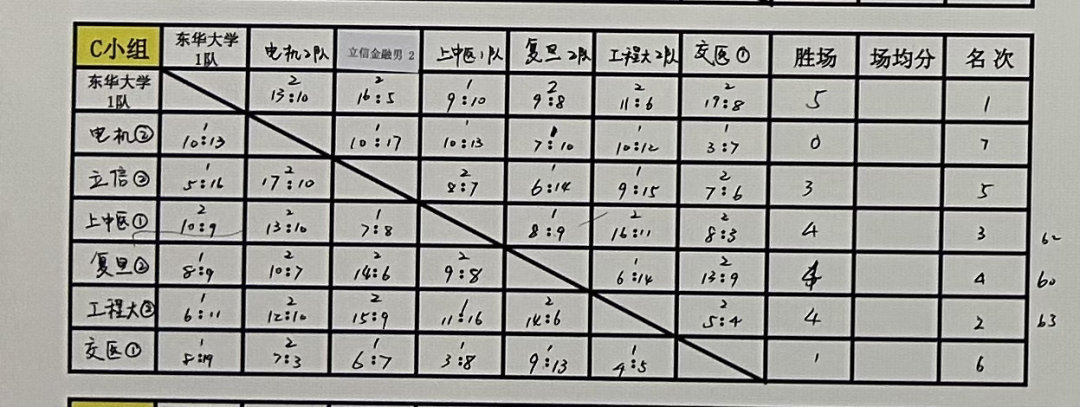 C小组 东华大学1队 电机2队 立信金融男 2 上中医1队 复旦2队 工程大2队 交医① 胜场 场均分 名次
东华大学1队 2 13:10 2 16:5 1 9:10 2 9:8 2 11:6 2 19:8 5 1
电机② 1 10:13 1 10:17 1 10:13 1 7:10 1 10:12 1 3:7 0 7
立信② 1 5:16 2 17:10 2 8:7 1 6:14 1 9:15 2 7:6 3 5
上中医① 2 10:9 2 13:10 1 7:8 1 8:9 2 16:11 2 8:3 4 3 62
复旦② 1 8:9 2 10:7 2 14:6 2 9:8 1 6:14 2 13:9 4 4 60
工程大② 1 6:11 2 12:10 2 15:9 1 11:16 2 14:6 2 5:4 4 2 63
交医① 1 8:19 2 7:3 1 6:7 1 3:8 1 9:13 1 4:5 1 6